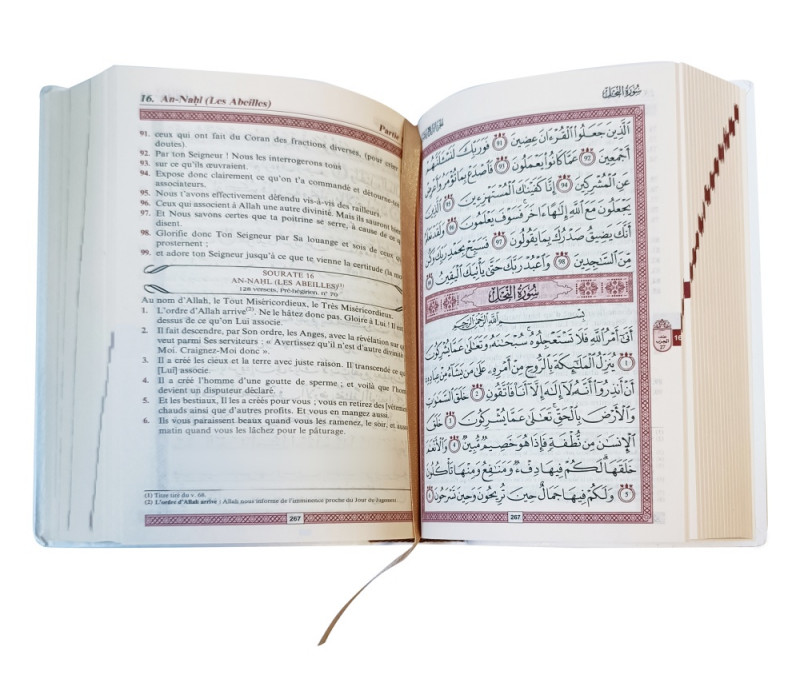 16. An-Naḥl (Les Abeilles)
Partie
91. ceux qui ont fait du Coran des fractions diverses, (pour créer
doutes).
92. Par ton Seigneur ! Nous les interrogerons tous
93. sur ce qu'ils œuvraient.
94. Expose donc clairement ce qu'on t'a commandé et détourne-toi
associateurs.
95. Nous t'avons effectivement défendu vis-à-vis des railleurs.
96. Ceux qui associent à Allah une autre divinité. Mais ils sauront bien
97. Et Nous savons certes que ta poitrine se serre, à cause de ce qu'
disent.
98. Glorifie donc Ton Seigneur par Sa louange et sois de ceux qui
prosternent ;
99. et adore ton Seigneur jusqu'à ce que te vienne la certitude (la mo
SOURATE 16
AN-NAHL (LES ABEILLES)(1)
128 versets, Pré-hégirien. n° 70
Au nom d'Allah, le Tout Miséricordieux, le Très Miséricordieux.
1. L'ordre d'Allah arrive(2). Ne le hâtez donc pas. Gloire à Lui ! Il est
dessus de ce qu'on Lui associe.
2. Il fait descendre, par Son ordre, les Anges, avec la révélation sur q
veut parmi Ses serviteurs : « Avertissez qu'il n'est d'autre divinité
Moi. Craignez-Moi donc ».
3. Il a créé les cieux et la terre avec juste raison. Il transcende ce q
[Lui] associe.
4. Il a créé l'homme d'une goutte de sperme ; et voilà que l'hom
devient un disputeur déclaré.
5. Et les bestiaux, Il les a créés pour vous ; vous en retirez des [vêtem
chauds ainsi que d'autres profits. Et vous en mangez aussi.
6. Ils vous paraissent beaux quand vous les ramenez, le soir, et aussi
matin quand vous les lâchez pour le pâturage.
(1) Titre tiré du v. 68.
(2) L'ordre d'Allah arrive : Allah nous informe de l'imminence proche du Jour du Jugement
267
سُورَةُ النَّحْلِ
الَّذِينَ جَعَلُوا الْقُرْءَانَ عِضِينَ ٩١ فَوَرَبِّكَ لَنَسْـَٔلَنَّهُمْ
أَجْمَعِينَ ٩٢ عَمَّا كَانُوا يَعْمَلُونَ ٩٣ فَاصْدَعْ بِمَا تُؤْمَرُ وَأَعْرِضْ
عَنِ الْمُشْرِكِينَ ٩٤ إِنَّا كَفَيْنَاكَ الْمُسْتَهْزِءِينَ ٩٥ الَّذِينَ
يَجْعَلُونَ مَعَ اللَّهِ إِلَٰهًا ءَاخَرَ فَسَوْفَ يَعْلَمُونَ ٩٦ وَلَقَدْ نَعْلَمُ
أَنَّكَ يَضِيقُ صَدْرُكَ بِمَا يَقُولُونَ ٩٧ فَسَبِّحْ بِحَمْدِ رَبِّكَ وَكُن
مِّنَ السَّاجِدِينَ ٩٨ وَاعْبُدْ رَبَّكَ حَتَّىٰ يَأْتِيَكَ الْيَقِينُ ٩٩
سُورَةُ النَّحْلِ
بِسْمِ اللَّهِ الرَّحْمَٰنِ الرَّحِيمِ
أَتَىٰ أَمْرُ اللَّهِ فَلَا تَسْتَعْجِلُوهُ سُبْحَانَهُ وَتَعَالَىٰ عَمَّا يُشْرِكُونَ
١ يُنَزِّلُ الْمَلَائِكَةَ بِالرُّوحِ مِنْ أَمْرِهِ عَلَىٰ مَن يَشَاءُ مِنْ عِبَادِهِ
أَنْ أَنذِرُوا أَنَّهُ لَا إِلَٰهَ إِلَّا أَنَا فَاتَّقُونِ ٢ خَلَقَ السَّمَاوَاتِ
وَالْأَرْضَ بِالْحَقِّ تَعَالَىٰ عَمَّا يُشْرِكُونَ ٣ خَلَقَ
الْإِنسَانَ مِن نُّطْفَةٍ فَإِذَا هُوَ خَصِيمٌ مُّبِينٌ ٤ وَالْأَنْعَامَ
خَلَقَهَا لَكُمْ فِيهَا دِفْءٌ وَمَنَافِعُ وَمِنْهَا تَأْكُلُونَ
٥ وَلَكُمْ فِيهَا جَمَالٌ حِينَ تُرِيحُونَ وَحِينَ تَسْرَحُونَ ٦
267
16